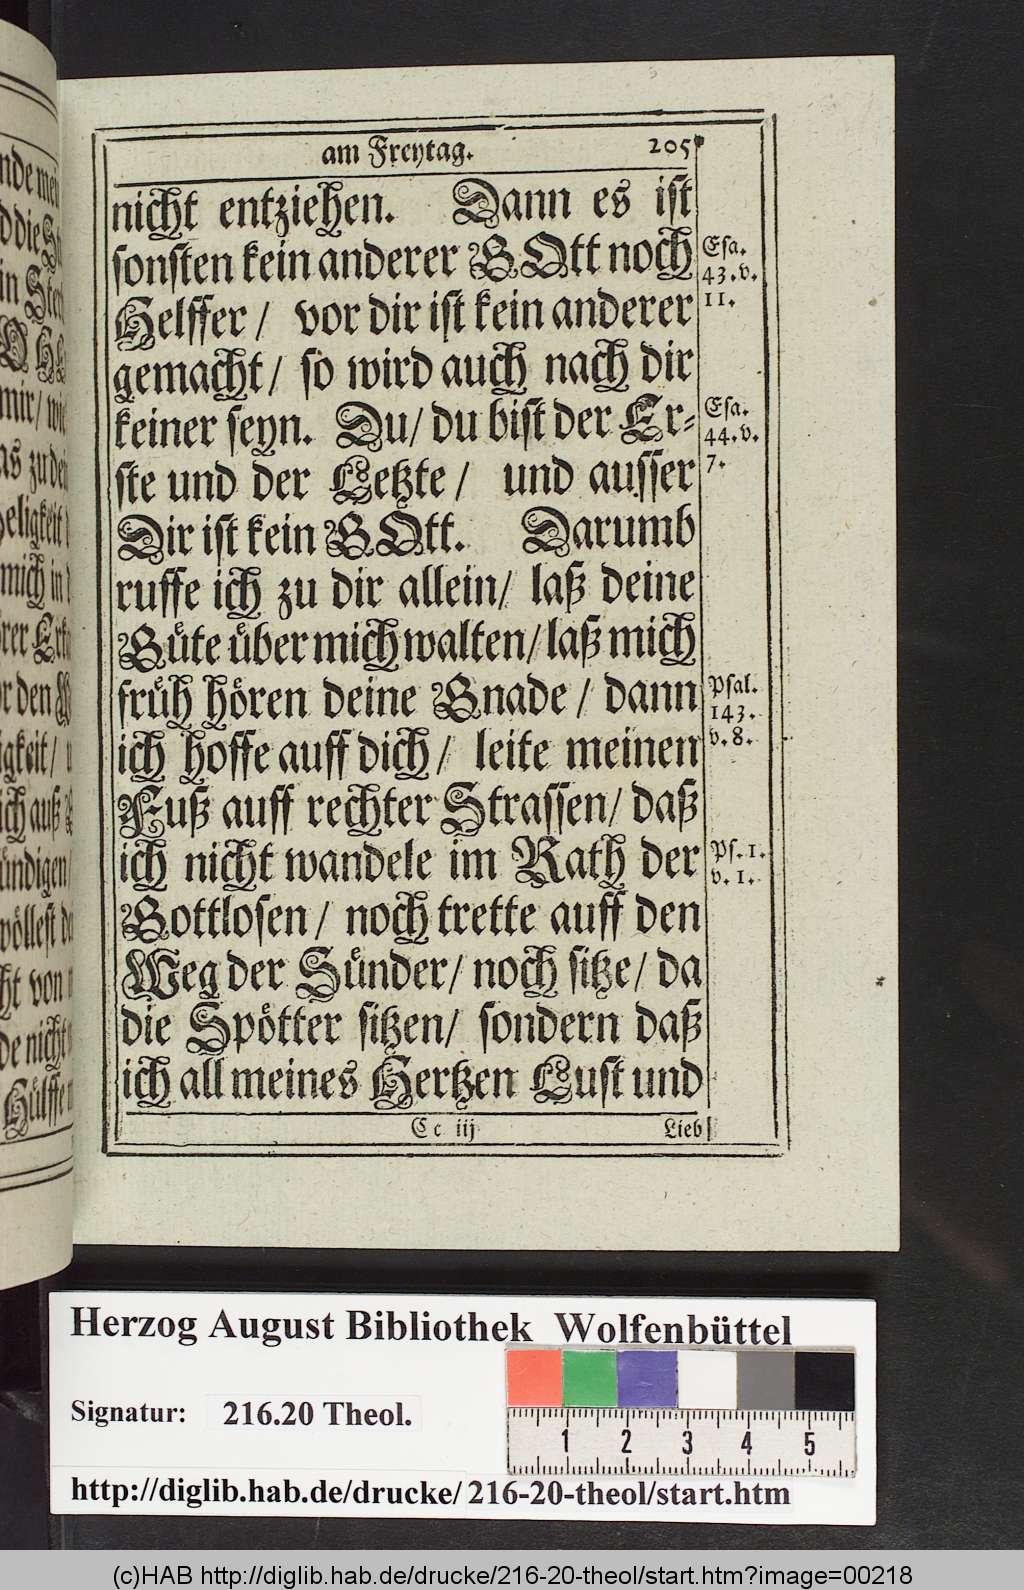 am Freytag. 205
nicht entziehen. Dann es ist
sonsten kein anderer GOtt noch
Helffer / vor dir ist kein anderer
gemacht / so wird auch nach dir
keiner seyn. Du / du bist der Er-
ste und der Letzte / und ausser
Dir ist kein GOtt. Darumb
ruffe ich zu dir allein / laß deine
Güte über mich walten / laß mich
früh hören deine Gnade / dann
ich hoffe auff dich / leite meinen
Fuß auff rechter Strassen / daß
ich nicht wandele im Rath der
Gottlosen / noch trette auff den
Weg der Sünder / noch sitze / da
die Spötter sitzen / sondern daß
ich all meines Hertzen Lust und
Cc iij Lieb
Esa.
43. v.
11.
Esa.
44. v.
7.
Psal.
143.
v. 8.
Ps. 1.
v. 1.
Herzog August Bibliothek Wolfenbüttel
Signatur: 216.20 Theol.
1 2 3 4 5
http://diglib.hab.de/drucke/216-20-theol/start.htm
(c)HAB http://diglib.hab.de/drucke/216-20-theol/start.htm?image=00218